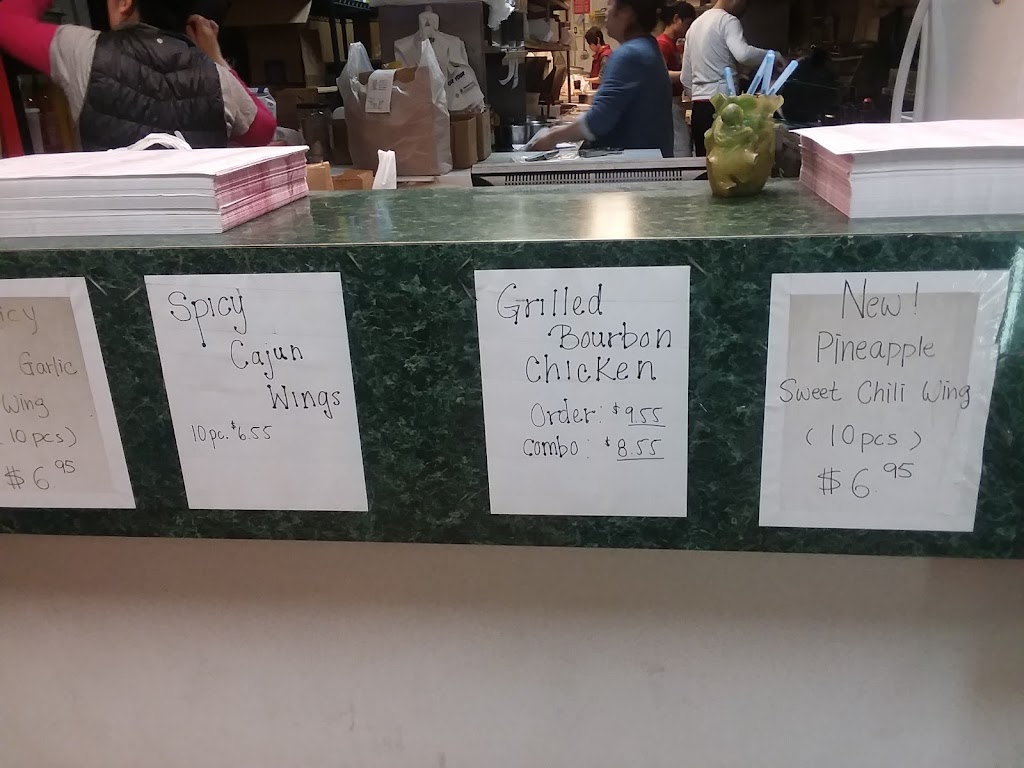 Garlic
Wing
(10 pcs)
$6.95
Spicy
Cajun
Wings
10 pc. $6.55
Grilled
Bourbon
Chicken
Order: $9.55
Combo: $8.55
New!
Pineapple
Sweet Chili Wing
(10 pcs)
$6.95